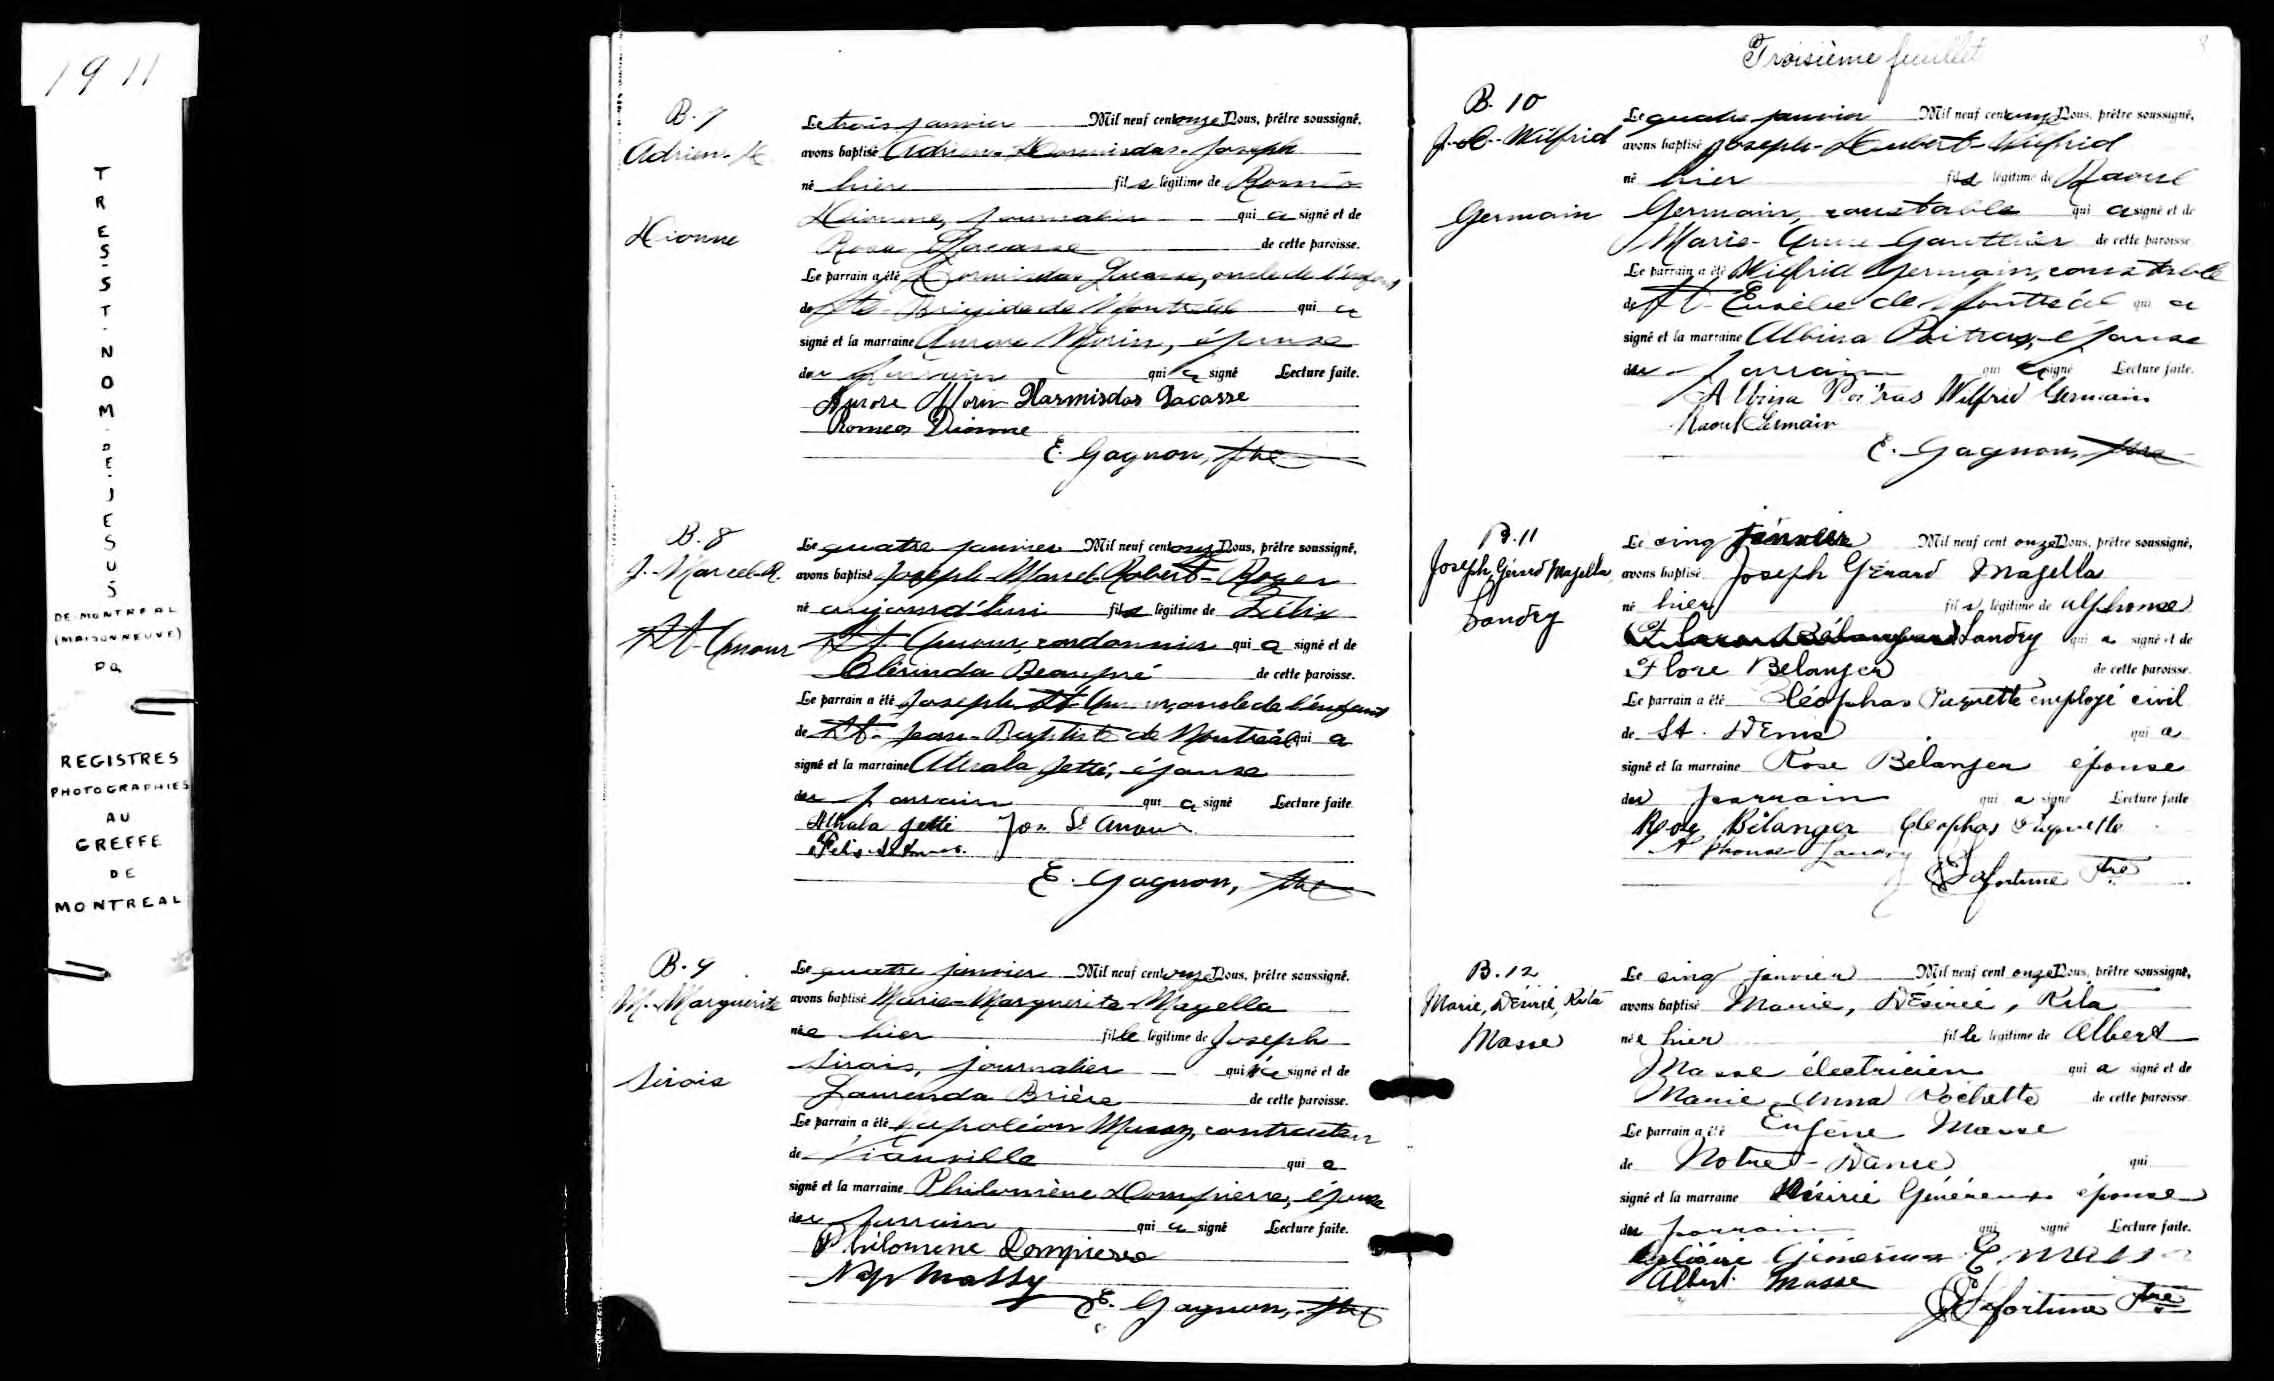 1911
TRES-ST-NOM-DE-JESUS
DE-MONTREAL
(MAISONNEUVE)
PQ
REGISTRES
PHOTOGRAPHIES
AU
GREFFE
DE
MONTREAL
B. 7
Adrien-H.
Dionne
Le trois janvier Mil neuf cent onze Nous, prêtre soussigné,
avons baptisé Adrien-Hormisdas-Joseph
né hier fils légitime de Roméo
Dionne, journalier qui a signé et de
Rosa Lacasse de cette paroisse.
Le parrain a été Hormisdas Lacasse, oncle de l'enfant
de Ste-Brigide de Montréal qui a
signé et la marraine Aurore Morin, épouse
du parrain qui a signé Lecture faite.
Aurore Morin Harmisdas Lacasse
Romeo Dionne
E. Gagnon, ptre
B. 8
J.-Marcel-R.
St-Amour
Le quatre janvier Mil neuf cent onze Nous, prêtre soussigné,
avons baptisé Joseph-Marcel-Robert-Roger
né aujourd'hui fils légitime de Félix
St-Amour, cordonnier qui a signé et de
Clérinda Beaupré de cette paroisse.
Le parrain a été Joseph St-Amour, oncle de l'enfant
de St-Jean-Baptiste de Montréal qui a
signé et la marraine Athala Jetté, épouse
du parrain qui a signé Lecture faite
Athala Jetté Jos. St Amour
E. Gagnon, ptre
B. 9
M.-Marguerite
Sirois
Le quatre janvier Mil neuf cent onze Nous, prêtre soussigné,
avons baptisé Marie-Marguerite-Magella
née hier fille légitime de Joseph
Sirois, journalier qui a signé et de
Laurenda Brière de cette paroisse.
Le parrain a été Napoléon Massy, contracteur
de Viauville qui a
signé et la marraine Philomène Dompierre, épouse
du parrain qui a signé Lecture faite.
Philomene Dompierre
Nap Massy
E. Gagnon, ptre
Troisième feuillet
B. 10
J.-H.-Wilfrid
Germain
Le quatre janvier Mil neuf cent onze Nous, prêtre soussigné,
avons baptisé Joseph-Hubert-Wilfrid
né hier fils légitime de Raoul
Germain, constable qui a signé et de
Marie-Anne Gauthier de cette paroisse
Le parrain a été Wilfrid Germain, constable
de St-Eusèbe de Montréal qui a
signé et la marraine Albina Poitras, épouse
du parrain qui a signé Lecture faite.
Albina Poitras Wilfrid Germain
Raoul Germain
E. Gagnon, ptre
B. 11
Joseph Gérard Magella
Landry
Le cinq janvier Mil neuf cent onze Nous, prêtre soussigné,
avons baptisé Joseph Gérard Magella
né hier fils légitime de Alphonse
Landry qui a signé et de
Flore Bélanger de cette paroisse.
Le parrain a été Cléophas Paquette employé civil
de St. Denis qui a
signé et la marraine Rose Bélanger épouse
du parrain qui a signé Lecture faite
Bélanger Cléophas Paquette
Alphonse Landry
Lafortune Ptre
B. 12
Marie, Désirié, Rita
Masse
Le cinq janvier Mil neuf cent onze Nous, prêtre soussigné,
avons baptisé Marie, Désirié, Rita
née hier fille légitime de Albert
Masse électricien qui a signé et de
Marie Anna Rochette de cette paroisse
Le parrain a été Eugène Masse
de Notre-Dame qui
signé et la marraine Désirié Généreux épouse
du parrain qui signé Lecture faite.
Généreux E Masse
Albert Masse
Lafortune Ptre